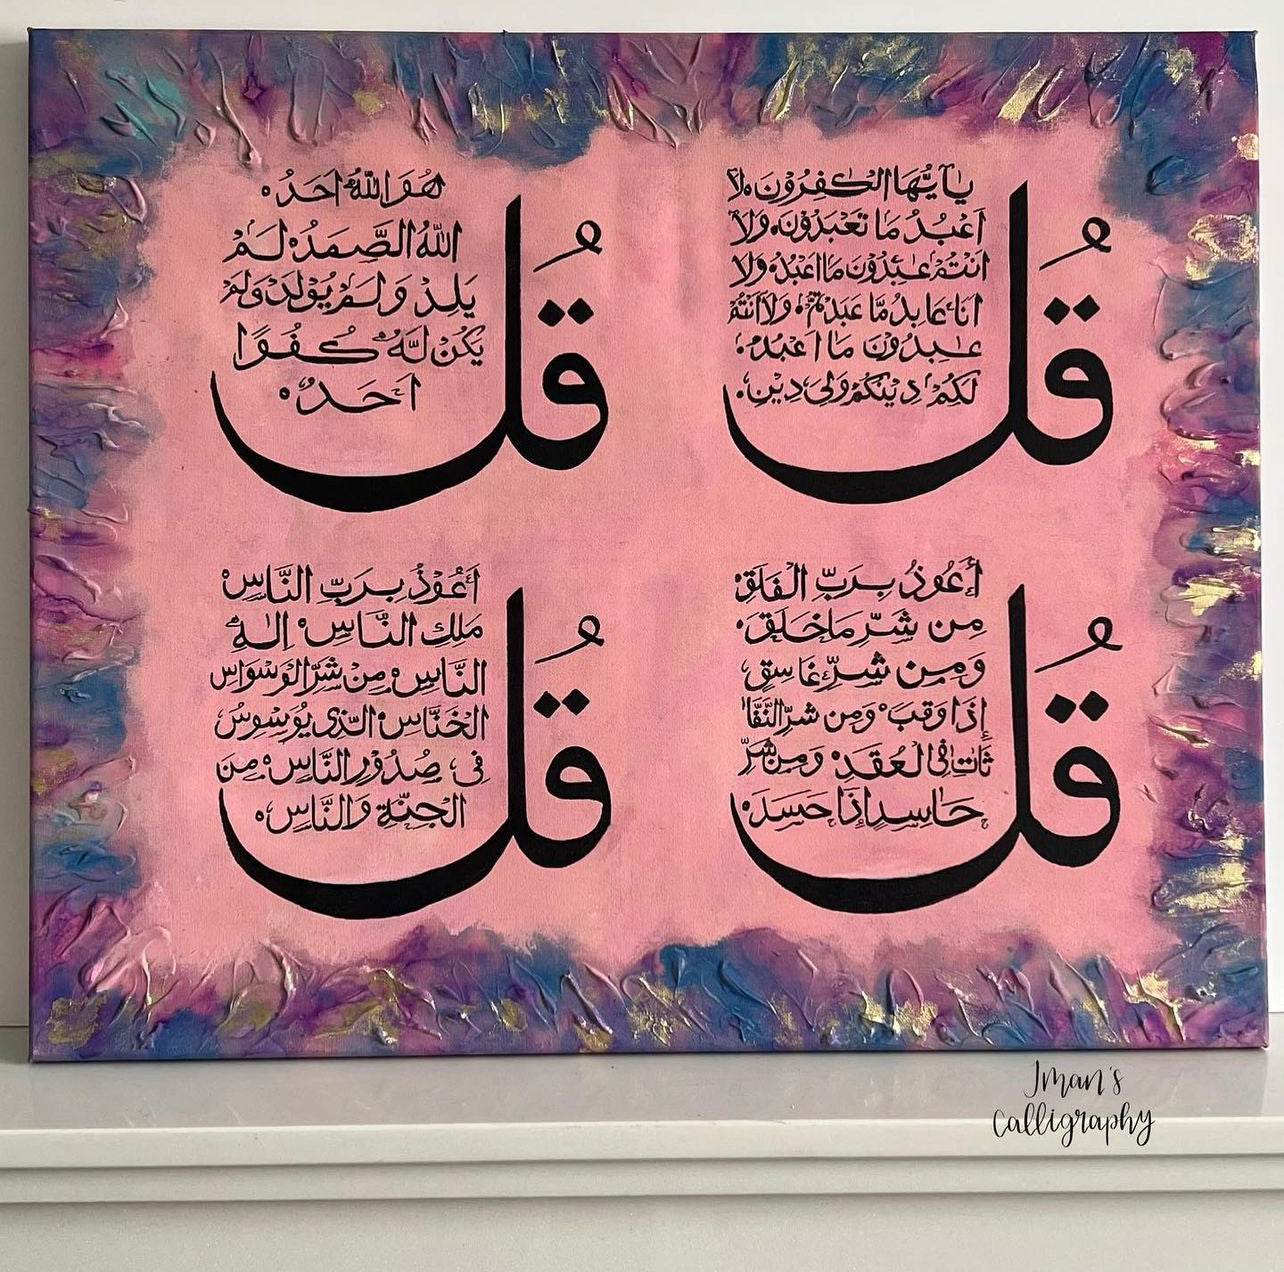 قُل
يٰٓاَيُّهَا الْكٰفِرُوْنَ لَآ
اَعْبُدُ مَا تَعْبَدُوْنَ وَلَآ
اَنْتُمْ عٰبِدُوْنَ مَا اَعْبُدُ وَلَا
اَنَا عَابِدُ مَّا عَبَدْتُّمْ وَلَآ اَنْتُمْ
عٰبِدُوْنَ مَا اَعْبُدُ
لَكُمْ دِيْنُكُمْ وَلِىَ دِيْنِ
قُل
هُوَ اللّٰهُ اَحَدٌ
اللّٰهُ الصَّمَدُ لَمْ
يَلِدْ وَلَمْ يُوْلَدْ وَلَمْ
يَكُنْ لَّهٗ كُفُوًا
اَحَدٌ
قُل
أَعُوْذُ بِرَبِّ الْفَلَقِ
مِن شَرِّ مَا خَلَقَ
وَمِن شَرِّ غَاسِقٍ
إِذَا وَقَبَ وَمِن شَرِّ النَّفّٰا
ثَاتِ فِى الْعُقَدِ وَمِن شَرِّ
حَاسِدٍ إِذَا حَسَدَ
قُل
أَعُوْذُ بِرَبِّ النَّاسِ
مَلِكِ النَّاسِ اِلٰهِ
النَّاسِ مِنْ شَرِّ الْوَسْوَاسِ
الْخَنَّاسِ الَّذِى يُوَسْوِسُ
فِى صُدُوْرِ النَّاسِ مِنَ
الْجِنَّةِ وَالنَّاسِ
Iman's
Calligraphy